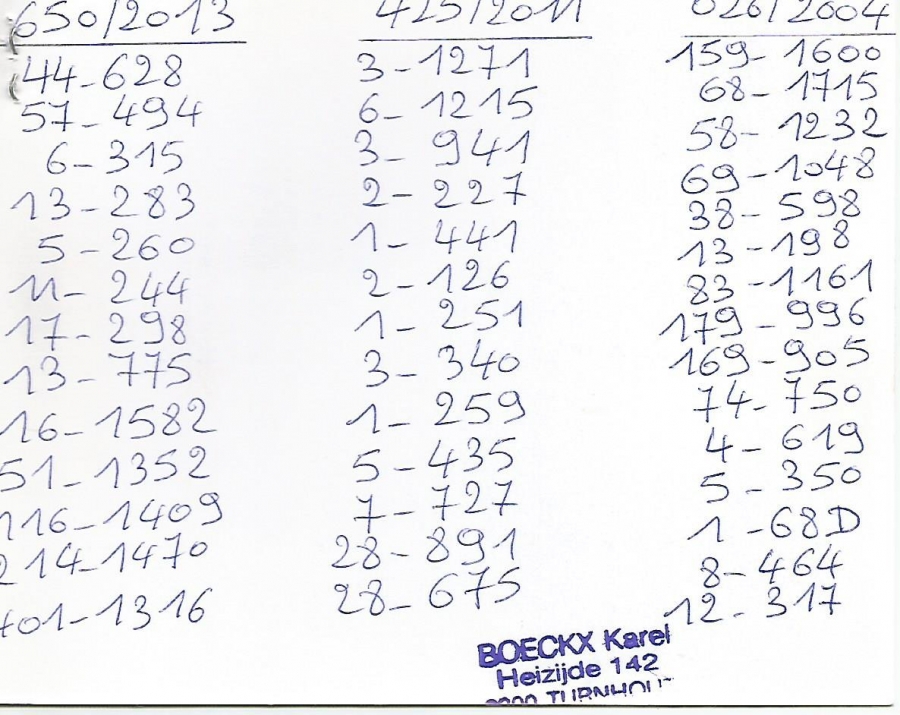 650/2013
44-628
57-494
6-315
13-283
5-260
11-244
17-298
13-775
16-1582
51-1352
116-1409
214-1470
401-1316
425/2011
3-1271
6-1215
3-941
2-227
1-441
2-126
1-251
3-340
1-259
5-435
7-727
28-891
28-675
026/2004
159-1600
68-1715
58-1232
69-1048
38-598
13-198
83-1161
179-996
169-905
74-750
4-619
5-350
1-68D
8-464
12-317
BOECKX Karel
Heizijde 142
TURNHOUT